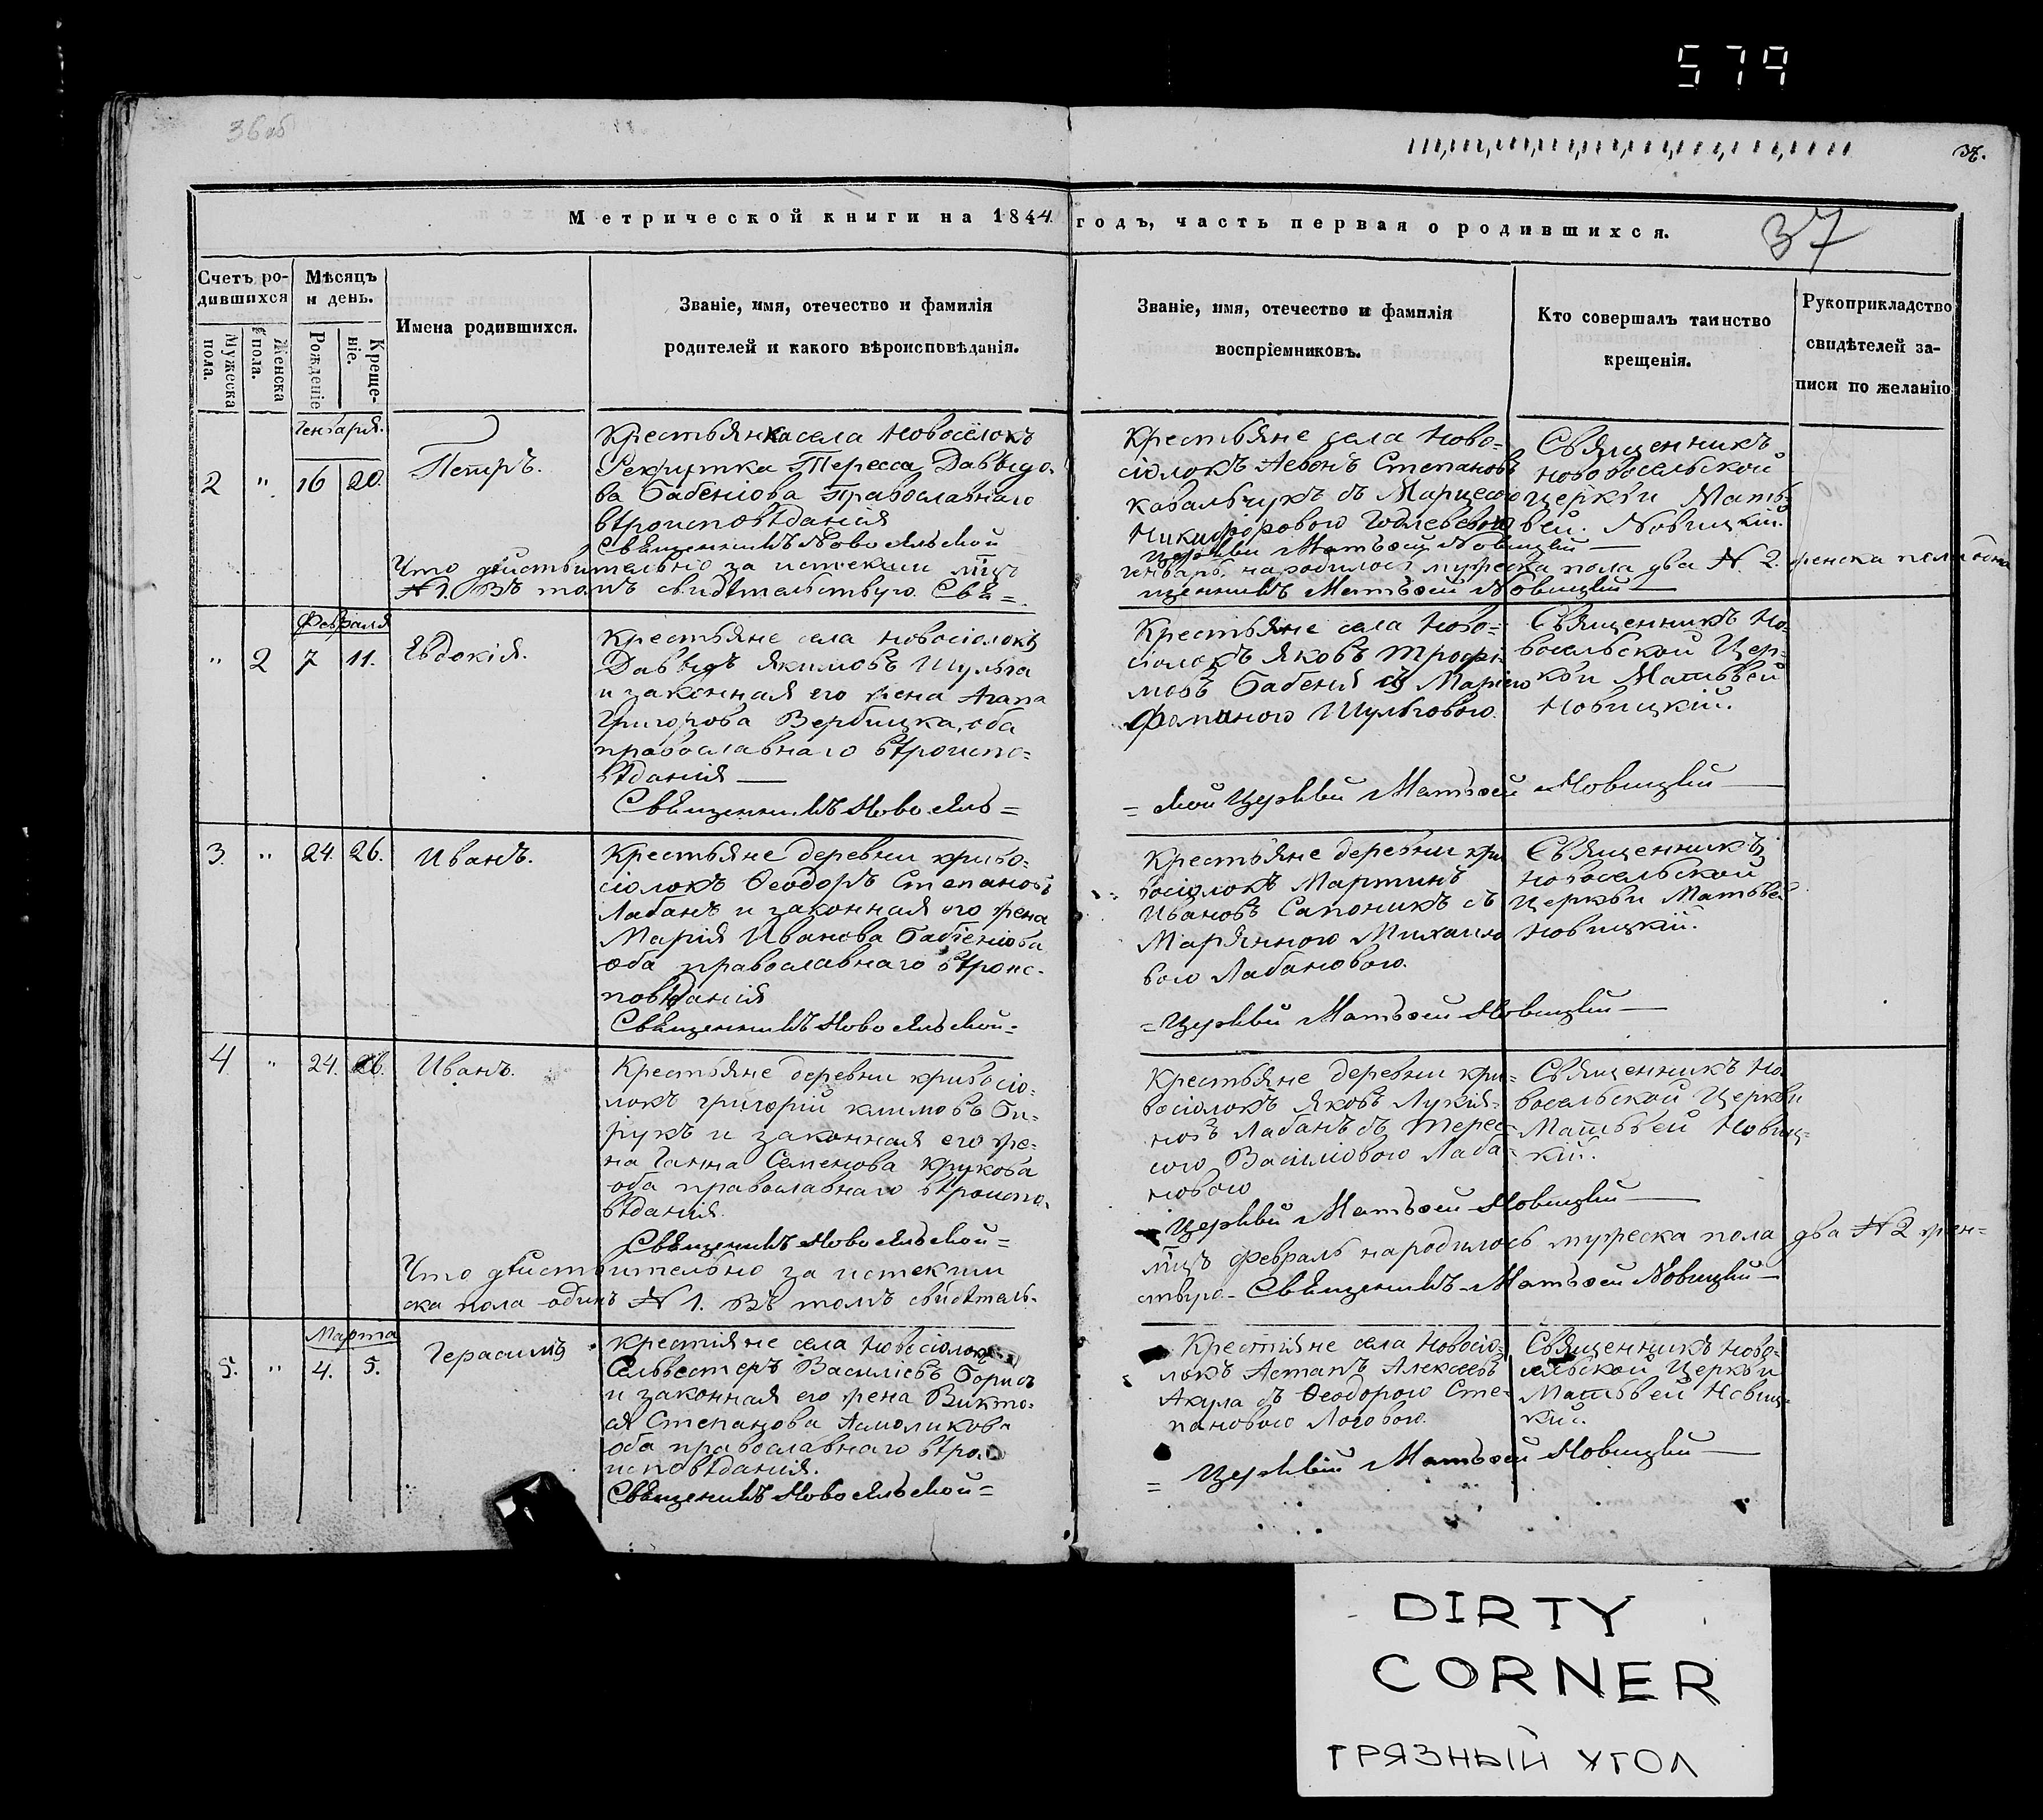 579
36об
37.
Метрической книги на 1844 годъ, часть первая о родившихся.
37
Счетъ ро-
дившихся
Мужеска
пола.
Женска
пола.
Мѣсяцъ
и день.
Рожденіе
Креще-
ніе.
Имена родившихся.
Званіе, имя, отечество и фамилія
родителей и какого вѣроисповѣданія.
Званіе, имя, отечество и фамилія
воспріемниковъ.
Кто совершалъ таинство
крещенія.
Рукоприкладство
свидѣтелей за-
писи по желанію
Генваря.
2 " 16 20.
Петръ.
Крестьянка села Новосёлокъ
Рекрутка Тересса Давыдо-
ва Бабеніова Православнаго
вѣроисповѣданія
Священникъ Новосельской
Крестьяне села Ново-
сіолокъ Леонъ Степановъ
Ковальчукъ съ Марцелою
Никифоровою
Церкви Матвѣй Новицкій
Священникъ
Новосельской
Церкви Мать-
вей Новицкій.
Что дѣйствительно за истекши мцъ
Генварь народилось мужеска пола два N. 2. женска пола одна
N 1. Въ томъ свидѣтельствую Свя=
щенникъ Матвѣй Новицкій
Февраля
" 2 7 11.
Евдокія.
Крестьяне села Новосіолокъ
Давыдъ Якимовъ Шульга
и законная его жена Агапа
Григорова Вербицка, оба
православнаго вѣроиспо-
вѣданія
Священникъ Новосель=
Крестьяне села Ново-
сіолокъ Яковъ Трофи
мовъ Бабеня съ Маріею
Фоминою Шульговою.
= ской Церкви Матвѣй Новицкій
Священникъ Но-
восельской Цер-
кви Матьвей
Новицкій.
3. " 24. 26.
Иванъ.
Крестьяне деревни криво-
сіолокъ Ѳеодоръ Степановъ
Лабанъ и законная его жена
Марія Иванова Бабеніова
оба православнаго вѣроис-
повѣданія
Священникъ Новосельской=
Крестьяне деревни кри
восіолокъ Мартинъ
Ивановъ Сапоникъ съ
Марянною Михайло
вою Лабановою.
= Церкви Матвѣй Новицкій
Священникъ
Новосельской
Церкви Матьвей
Новицкій.
4 " 24. 26.
Иванъ.
Крестьяне деревни кривосіо-
локъ григорій климовъ Би-
рукъ и законная его же-
на Ганна Семенова Крукова
оба православнаго вѣроиспо-
вѣданія.
Священникъ Новосельской=
Крестьяне деревни кри-
восіолокъ Яковъ Лукія-
новъ Лабанъ съ Терес-
сою Василіовою Лаба-
новою
Церкви Матвѣй Новицкій
Священникъ Но
восельской Церкви
Матьвей Новиц-
кій.
Что дѣйствительно за истекши
мцъ февраль народилось мужеска пола два N 2 жен-
ска пола одинъ N 1. Въ томъ свидѣтель-
ствую- Священникъ Матвѣй Новицкій
Марта
5. " 4. 5.
Герасимъ
Крестіяне села Новосіолокъ
Сельвестеръ Василіевъ Борисъ
и законная его жена Викто-
ая Степанова
оба православнаго вѣро-
исповѣданія.
Священникъ Новосельской=
Крестіяне села Новосіо-
локъ Астапъ Алексеевъ
Акула съ Ѳеодорою Сте-
пановою Логовою.
= Церквій Матвѣй Новицкій
Священникъ Ново-
сельской Церкви
Матьвей Новиц-
кій.
DIRTY
CORNER
ГРЯЗНЫЙ УГОЛ